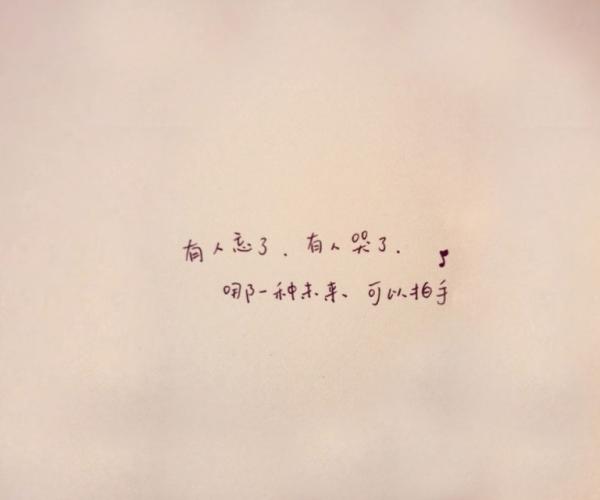 有人忘了.有人哭了.
哪一种未来、可以拍手